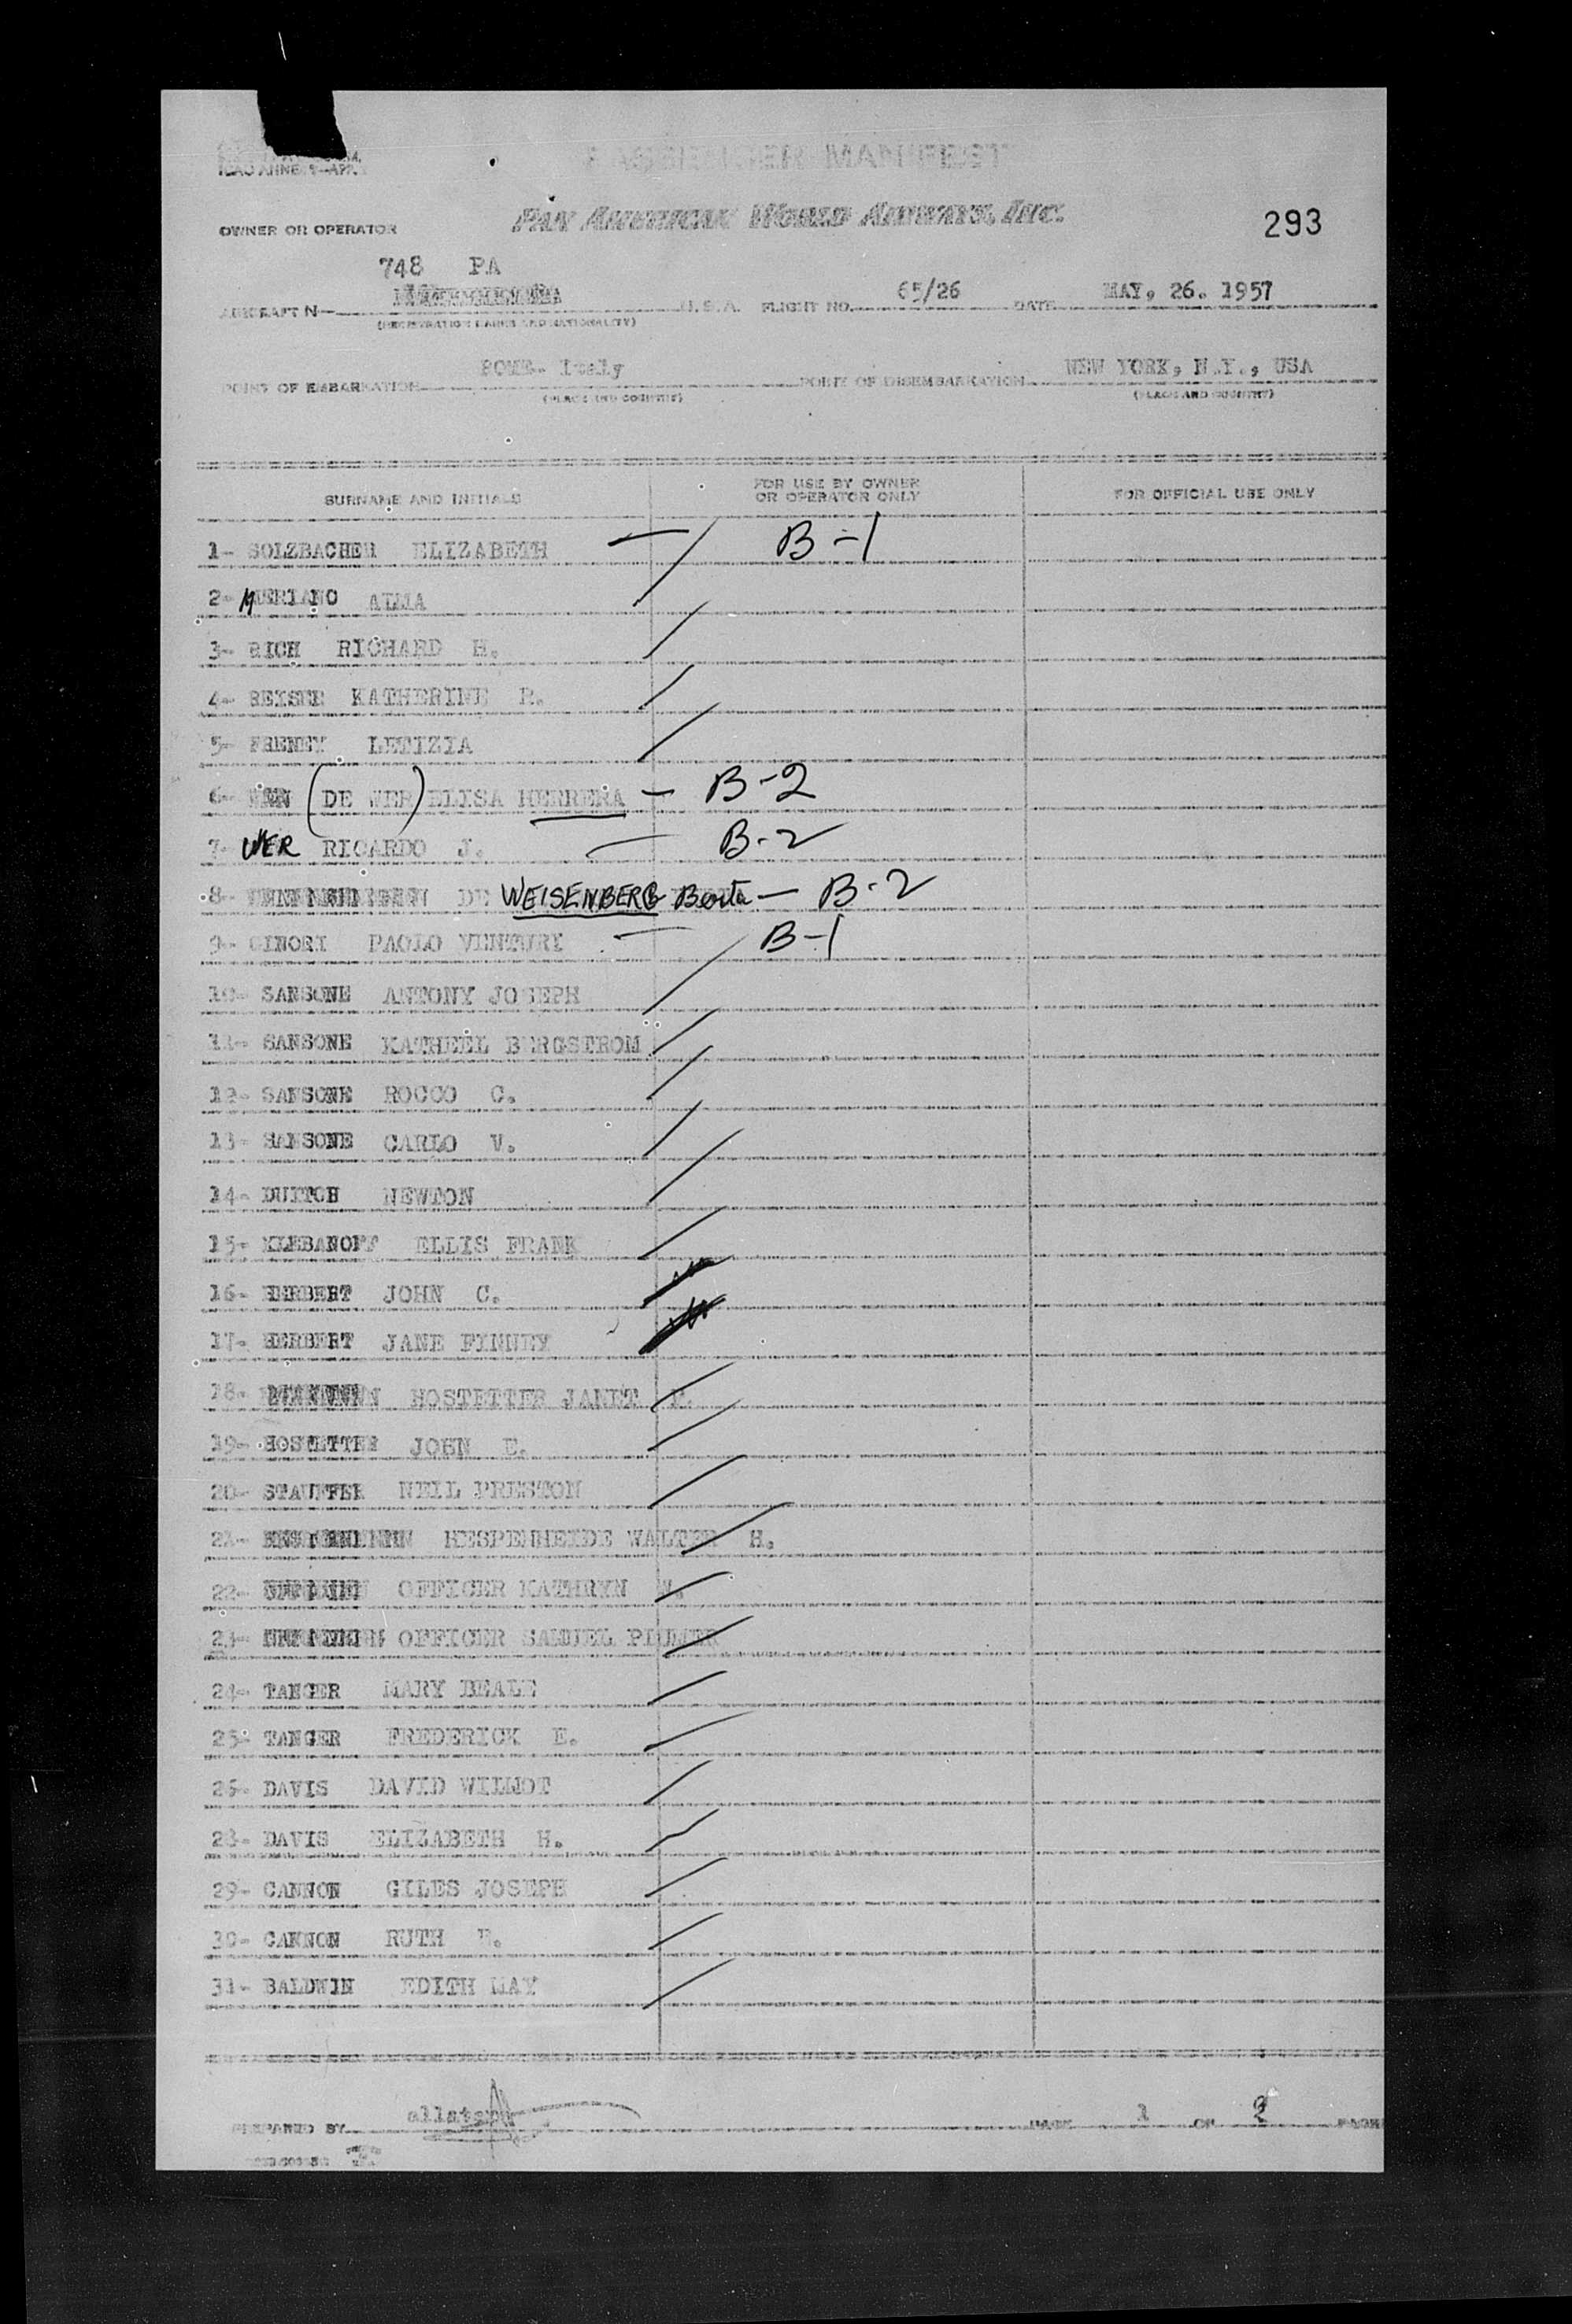 ICAO ANNEX 9—APP.
PASSENGER MANIFEST
OWNER OR OPERATOR PAN AMERICAN WORLD AIRWAYS, INC. 293
748 PA
AIRCRAFT N— U.S.A. FLIGHT NO. 65/26 DATE MAY, 26. 1957
(REGISTRATION MARKS AND NATIONALITY)
POINT OF EMBARKATION ROME- Italy PORT OF DISEMBARKATION NEW YORK, N.Y., USA
(PLACE AND COUNTRY) (PLACE AND COUNTRY)
SURNAME AND INITIALS FOR USE BY OWNER OR OPERATOR ONLY FOR OFFICIAL USE ONLY
1- SOLZBACHER ELIZABETH — B-1
2- ALMA
3- RICH RICHARD H.
4- REISER KATHERINE
5- FRENEY LETIZIA
6- (DE WER) ELISA HERRERA — B-2
7- WER RICARDO J. — B-2
8- DE WEISENBERG Berta — B-2
9- GINORI PAOLO VENTURI — B-1
10- SANSONE ANTONY JOSEPH
11- SANSONE KATHEEL BERGSTROM
12- SANSONE ROCCO C.
13- SANSONE CARLO V.
14- DUITCH NEWTON
15- KLEBANOFF ELLIS FRANK
16- HERBERT JOHN C.
17- HERBERT JANE FINNEY
18- HOSTETTER JANET
19- HOSTETTER JOHN E.
20- STAUFFER NEIL PRESTON
21- HESPENHEIDE WALTER H.
22- OFFICER KATHRYN
23- OFFICER SAMUEL
24- TANGER MARY BEALE
25- TANGER FREDERICK E.
26- DAVIS DAVID WILMOT
28- DAVIS ELIZABETH H.
29- CANNON GILES JOSEPH
30- CANNON RUTH
31- BALDWIN EDITH MAY
PREPARED BY PAGE 1 OF 2 PAGES